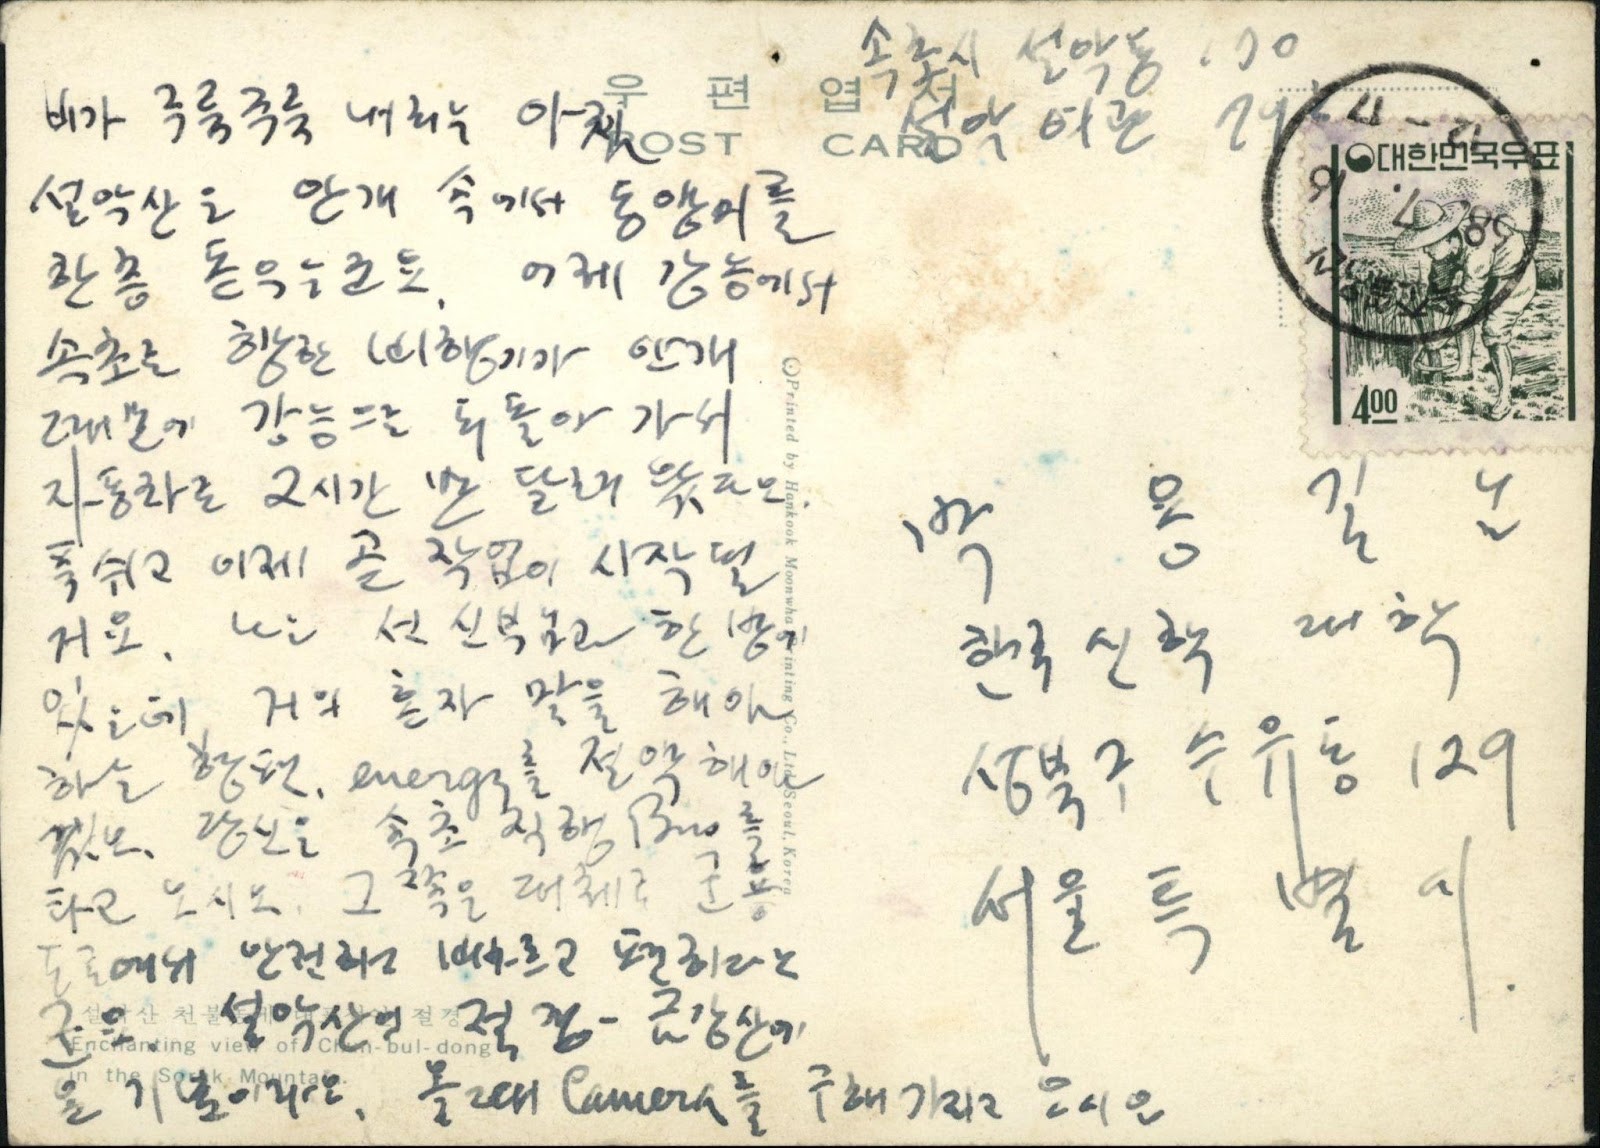 속초시 설악동 170
설악 여관
우편엽서
POST CARD
대한민국우표
4.00
비가 주룩주룩 내리는 아침
설악산은 안개 속에서 동앵이를
한층 돋우는군요. 어제 강릉에서
속초로 향한 비행기가 안개
때문에 강릉으로 되돌아 가서
자동차로 2시간 반 달려 왔다오.
푹 쉬고 이제 곧 작업이 시작될
거요. 나는 선 신부님과 한 방에
있는데 거의 혼자 말을 해야
하는 형편. energy를 절약해야
겠오. 당신은 속초 직행 Bus를
타고 오시오. 그 쪽은 대체로 군용
도로여서 안전하고 빠르고 편하다는
군요. 설악산의 절경 - 금강산에
올 기분이라오. 올 때 Camera를 구해 가지고 오시오
박용길 님
한국신학대학
성북구 수유동 129
서울특별시.
©Printed by Hankook Moonwha Printing Co., Ltd. Seoul, Korea
설악산 천불동계 절경
Enchanting view of Chun-bul-dong
in the Sorak Mountain.